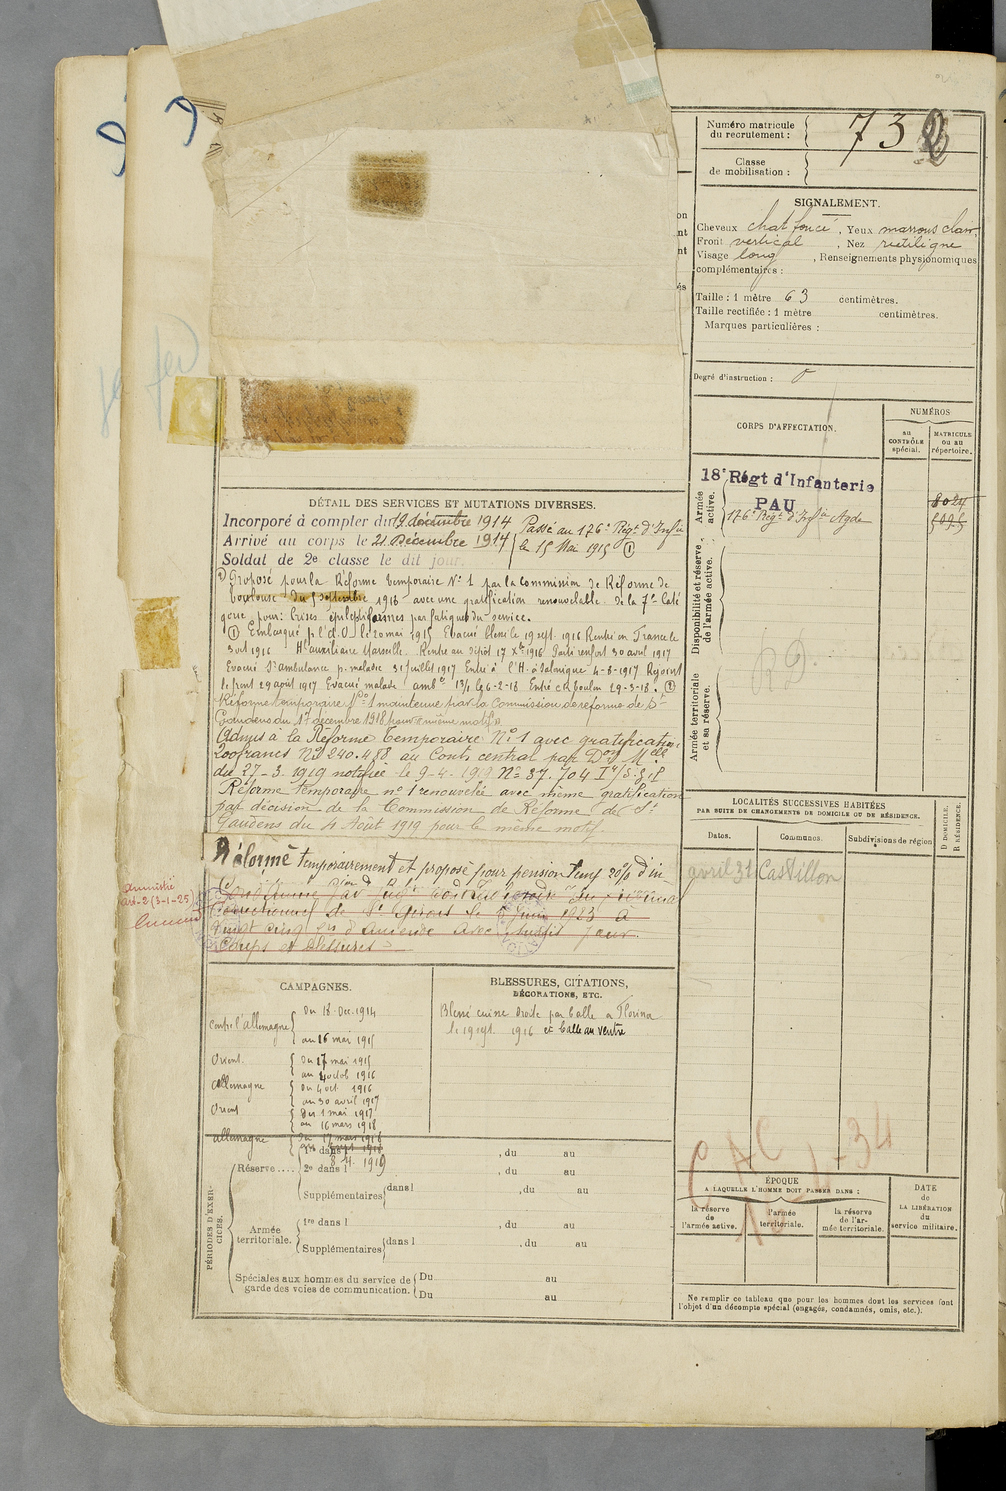 Numéro matricule
du recrutement : 732
Classe
de mobilisation :
SIGNALEMENT.
Cheveux chat foncé, Yeux marrons clair
Front vertical, Nez rectiligne
Visage long, Renseignements physionomiques
complémentaires :
Taille : 1 mètre 63 centimètres.
Taille rectifiée : 1 mètre centimètres.
Marques particulières :
Degré d'instruction : 0
CORPS D'AFFECTATION.
NUMÉROS
au
CONTRÔLE
spécial.
MATRICULE
ou au
répertoire.
Armée
active.
18e Régt d'Infanterie
PAU
8024
176e Régt d'Infie Agde
Disponibilité et réserve
de l'armée active.
Armée territoriale
et sa réserve.
RD
DÉTAIL DES SERVICES ET MUTATIONS DIVERSES.
Incorporé à compter du 19 décembre 1914
Arrivé au corps le 21 Décembre 1914
Soldat de 2e classe le dit jour.
Passé au 176e Régt d'Infie
le 15 Mai 1915 ①
② Proposé pour la Réforme temporaire N° 1 par la Commission de Réforme de
Toulouse du 5 septembre 1918 avec une gratification renouvelable de la 7e Caté
gorie pour: Crises épileptiformes par fatigues du service.
① Embarqué p. l'ct. O. le 20 mai 1915 Evacué blessé le 19 sept. 1916 Rentré en France le
3 oct 1916 Hl auxiliaire Marseille. Rentré au Dépôt 17 Xbre 1916 Parti renfort 30 avril 1917
Evacué St ambulance p. maladie 31 juillet 1917 Entré à l'H. à Salonique 4-8-1917 Rejoint
le front 29 août 1917 Evacué malade ambce 13/1 le 6-2-18 Entré ck boulou 29-3-18. ②
Réforme temporaire N° 1 maintenue par la Commission de réforme de St
Gaudens du 1er décembre 1918 pour même motif.
Admis à la Réforme temporaire N° 1 avec gratification
200 francs N° 240.488 au Conts central par Don Melle
du 27-3-1919 notifiée le 9-4-1919 N° 37.704
Réforme temporaire n° 1 renouvelée avec même gratification
par décision de la Commission de Réforme de St
Gaudens du 4 Août 1919 pour le même motif
Réformé temporairement et proposé pour pension temp 20% d'in
Condamné par
correctionnel de St Girons le 5 Juin 1923 à
vingt cinq frs d'amende avec sursis pour
Coups et blessures
Amnistié
art. 2 (3-1-25)
CAMPAGNES.
Contre l'allemagne { Du 18. Dec. 1914
au 16 mai 1915
Orient { Du 17 mai 1915
au 4 octob 1916
allemagne { Du 4 oct 1916
au 30 avril 1917
Orient { Du 1 mai 1917
au 16 mars 1918
allemagne { Du 17 mars 1918
8 4. 1919
BLESSURES, CITATIONS,
DÉCORATIONS, ETC.
Blessé cuisse droite par balle à Florina
le 19 sept. 1916 et balle au ventre
LOCALITÉS SUCCESSIVES HABITÉES
PAR SUITE DE CHANGEMENTS DE DOMICILE OU DE RÉSIDENCE.
Dates.
Communes.
Subdivisions de région
D DOMICILE.
R RÉSIDENCE.
avril 31 Castillon
CAC
10-4-34
PÉRIODES D'EXERCICES.
Réserve....
1re dans l , du au
2e dans l , du au
Supplémentaires { dans l , du au
Armée
territoriale.
1re dans l , du au
Supplémentaires { dans l , du au
Spéciales aux hommes du service de
garde des voies de communication. { Du au
Du au
ÉPOQUE
A LAQUELLE L'HOMME DOIT PASSER DANS :
la réserve
de
l'armée active.
l'armée
territoriale.
la réserve
de l'ar-
mée territoriale.
DATE
de
LA LIBÉRATION
du
service militaire.
Ne remplir ce tableau que pour les hommes dont les services font
l'objet d'un décompte spécial (engagés, condamnés, omis, etc.).